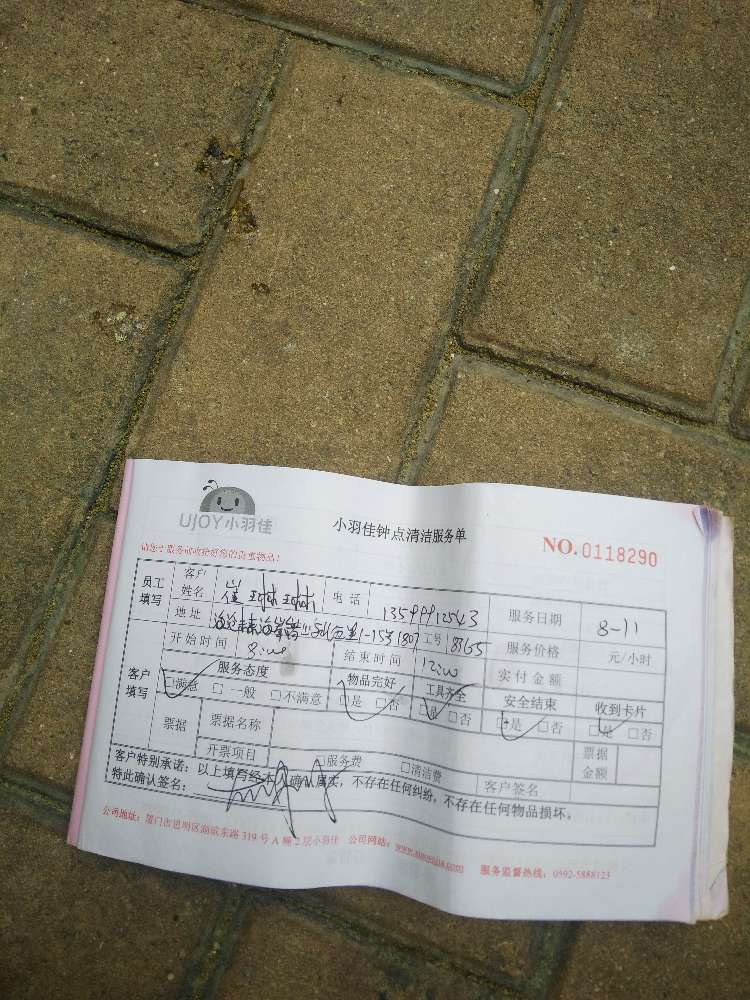 UJOY小羽佳
小羽佳钟点清洁服务单
NO.0118290
员工填写 客户姓名 崔琳琳 电话 13599912543 服务日期 8-11
地址 工号 8765 服务价格 元/小时
客户填写 开始时间 8:00 结束时间 12:00 实付金额
服务态度 物品完好 工具齐全 安全结束 收到卡片
□满意 □一般 □不满意 □是 □否 □是 □否 □是 □否 □是 □否
票据 票据名称 票据金额
开票项目 □服务费 □清洁费
客户特别承诺：以上填写经本人确认属实，不存在任何纠纷，不存在任何物品损坏。
特此确认签名： 客户签名
公司地址：厦门市思明区湖滨东路 319 号 A 幢 2 层小羽佳 公司网站： 服务监督热线：0592-5888123